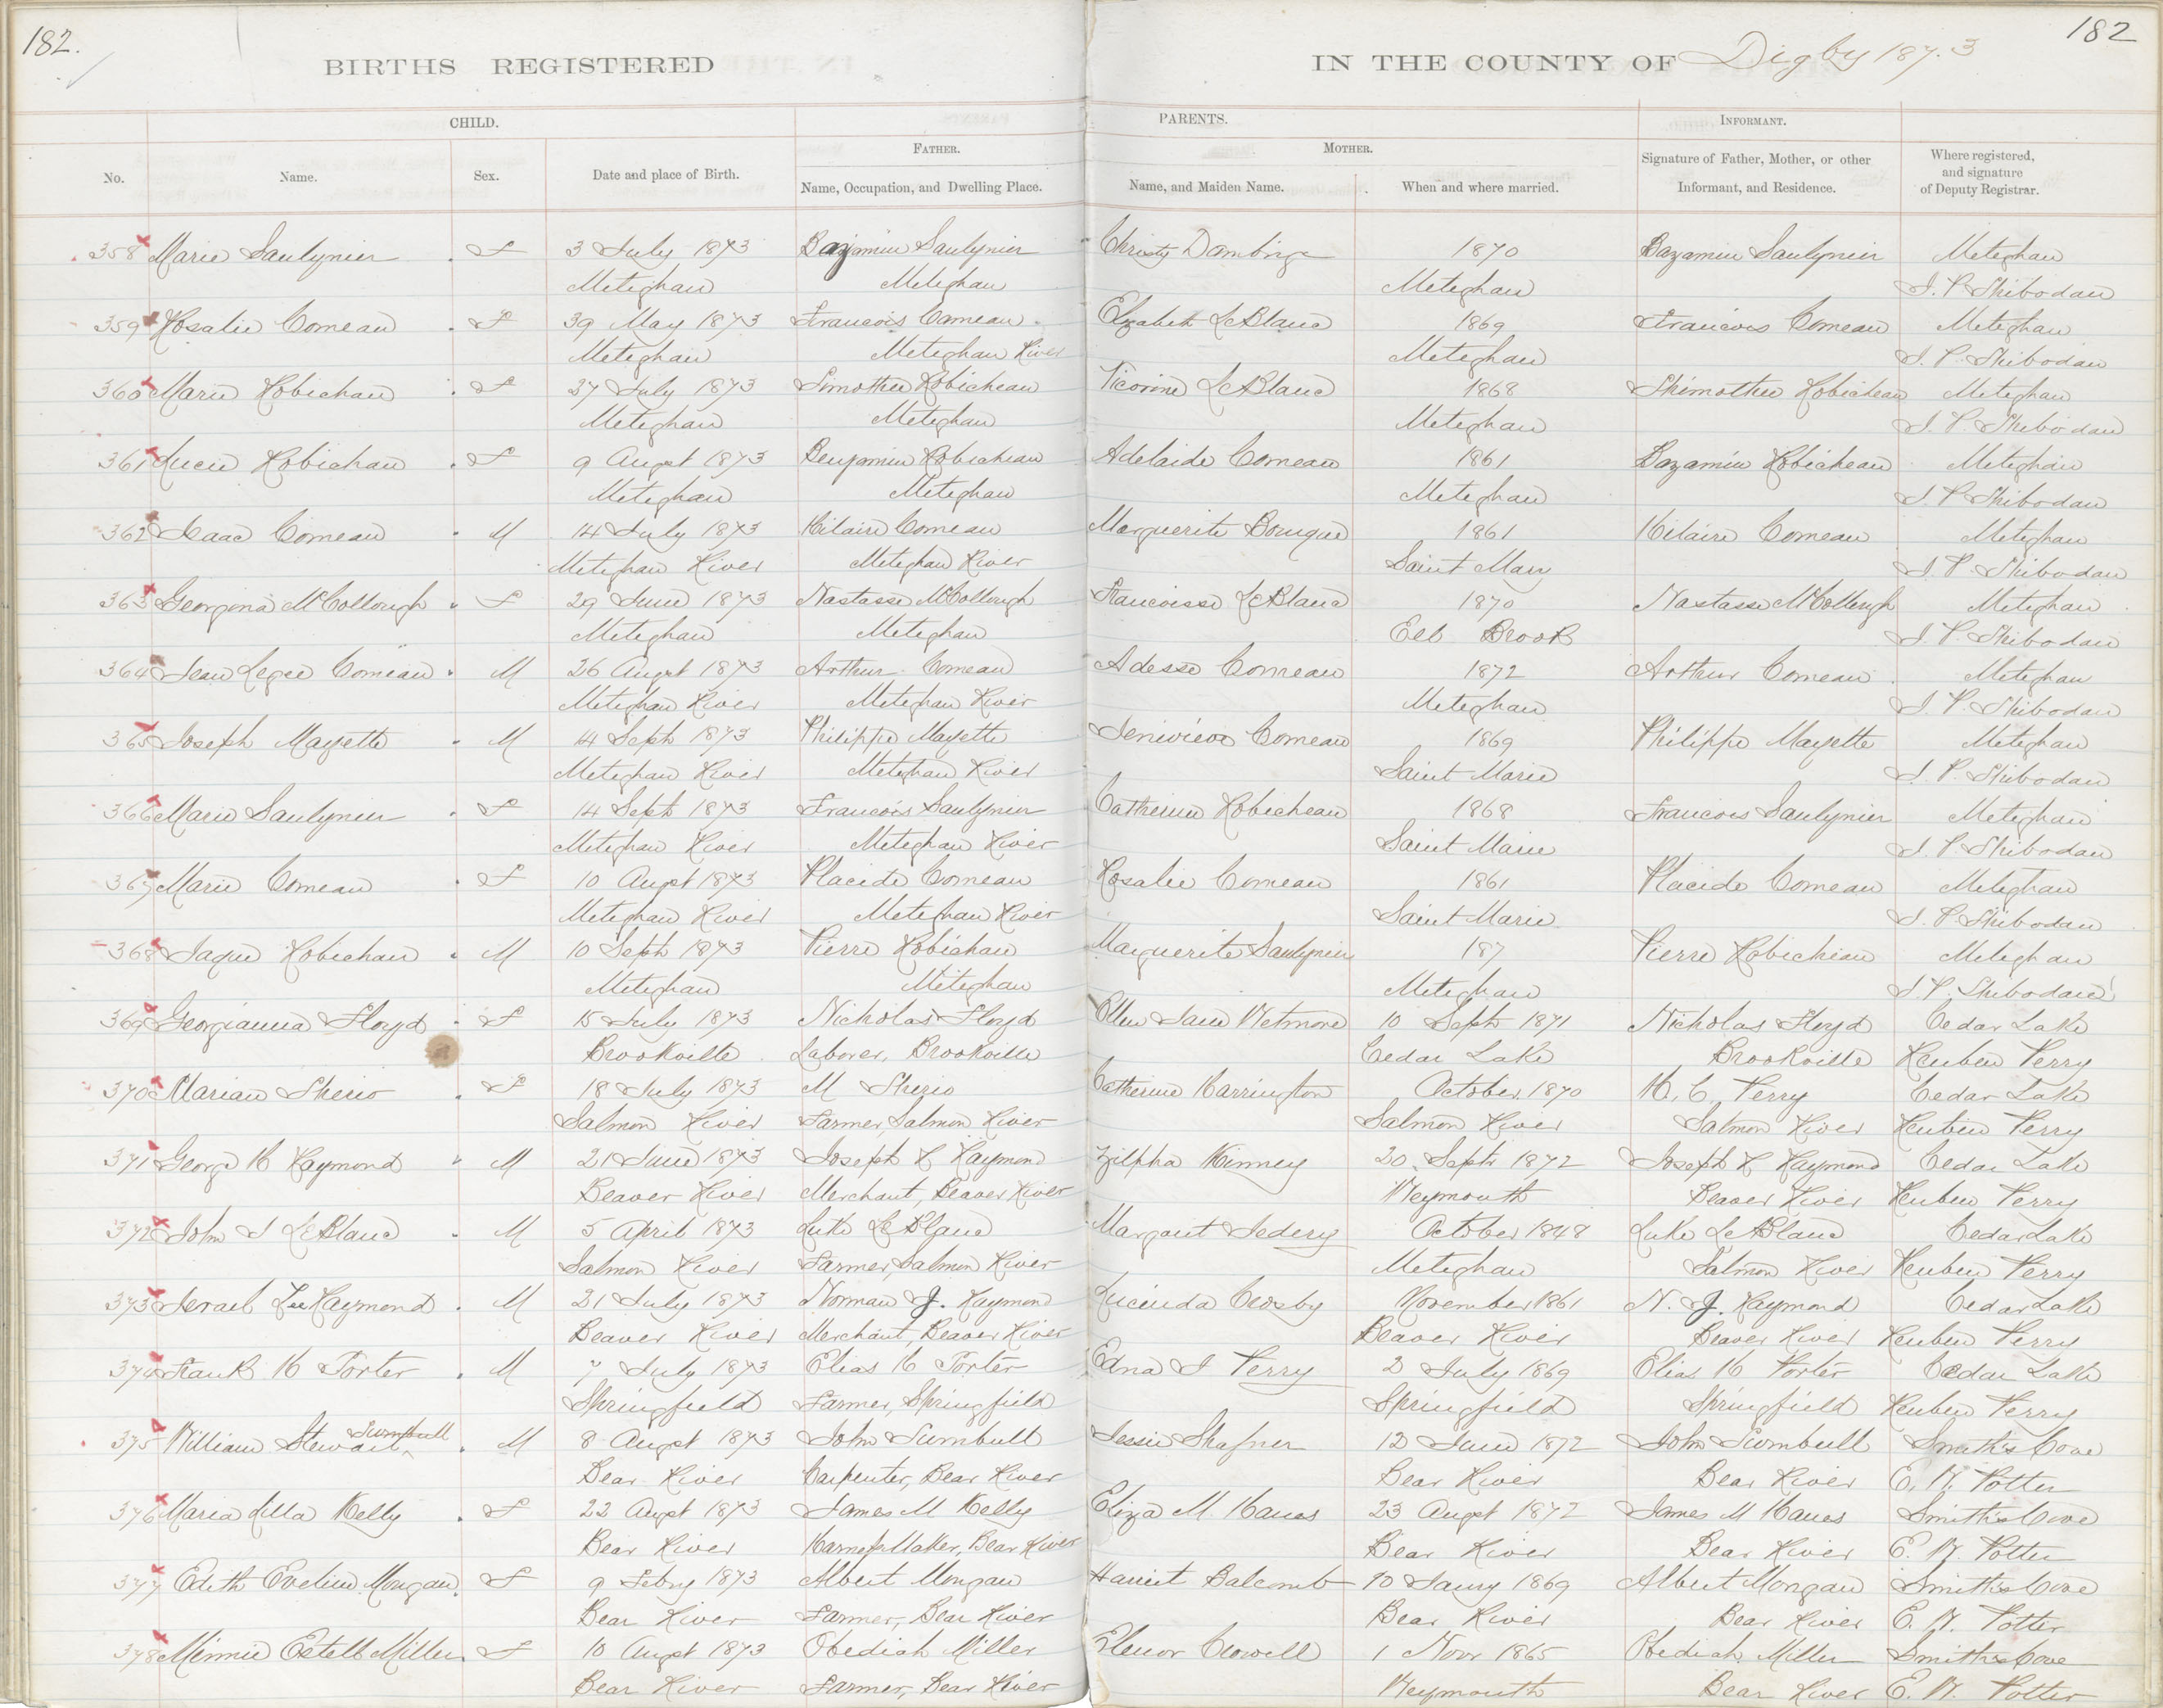 182.
182
BIRTHS REGISTERED IN THE COUNTY OF Digby 1873
CHILD. PARENTS. INFORMANT.
FATHER. MOTHER.
No. Name. Sex. Date and place of Birth. Name, Occupation, and Dwelling Place. Name, and Maiden Name. When and where married. Signature of Father, Mother, or other Informant, and Residence. Where registered, and signature of Deputy Registrar.
358 Marie Saulynier F 3 July 1873 Bazamin Saulynier Christy 1870 Bazamin Saulynier Meteghan
Meteghan Meteghan Meteghan J. P. Thibodau
359 Rosalie Comeau F 39 May 1873 Francois Comeau Elizabeth LeBlanc 1869 Francois Comeau Meteghan
Meteghan Meteghan River Meteghan J. P. Thibodau
360 Marie Robichau F 27 July 1873 Timothee Robicheau Victorine LeBlanc 1868 Thimothee Robicheau Meteghan
Meteghan Meteghan Meteghan J. P. Thibodau
361 Lucie Robichau F 9 Augst 1873 Benjamin Robicheau Adelaide Comeau 1861 Bazamin Robicheau Meteghan
Meteghan Meteghan Meteghan J. P. Thibodau
362 Isaac Comeau M 14 July 1873 Hilaire Comeau Marguerite Bouque 1861 Hilaire Comeau Meteghan
Meteghan River Meteghan River Saint Mary J. P. Thibodau
363 Georgina McCollough F 29 June 1873 Nastasse McCollough Francoise LeBlanc 1870 Nastasse McCollough Meteghan
Meteghan Meteghan Eel Brook J. P. Thibodau
364 Jean Leger Comeau M 26 Augst 1873 Arthur Comeau Adesse Comeau 1872 Arthur Comeau Meteghan
Meteghan River Meteghan River Meteghan J. P. Thibodau
365 Joseph Mayette M 14 Septr 1873 Philippe Mayette Jenivieve Comeau 1869 Philippe Mayette Meteghan
Meteghan River Meteghan River Saint Marie J. P. Thibodau
366 Marie Saulynier F 14 Septr 1873 Francois Saulynier Catherine Robicheau 1868 Francois Saulynier Meteghan
Meteghan River Meteghan River Saint Marie J. P. Thibodau
367 Marie Comeau F 10 Augst 1873 Placide Comeau Rosalie Comeau 1861 Placide Comeau Meteghan
Meteghan River Meteghan River Saint Marie J. P. Thibodau
368 Jaque Robichau M 10 Septr 1873 Pierre Robichau Marguerite Saulynier 187 Pierre Robichiau Meteghan
Meteghan Meteghan Meteghan J. P. Thibodau
369 Georgianna Floyd F 15 July 1873 Nicholas Floyd Ellen Jane Wetmore 10 Septr 1871 Nicholas Floyd Cedar Lake
Brookville Laborer, Brookville Cedar Lake Brookville Reuben Perry
370 Marian Therio F 18 July 1873 M Therio Catherine Harrington October 1870 H. C. Perry Cedar Lake
Salmon River Farmer, Salmon River Salmon River Salmon River Reuben Perry
371 George H Raymond M 21 June 1873 Joseph R Raymond Zilpha Kinney 20 Septr 1872 Joseph R Raymond Cedar Lake
Beaver River Merchant, Beaver River Weymouth Beaver River Reuben Perry
372 John J LeBlanc M 5 April 1873 Luke LeBlanc Margaret October 1848 Luke LeBlanc Cedar Lake
Salmon River Farmer, Salmon River Meteghan Salmon River Reuben Perry
373 Israel Lee Raymond M 21 July 1873 Norman J. Raymond Lucinda Crosby November 1861 N. J. Raymond Cedar Lake
Beaver River Merchant, Beaver River Beaver River Beaver River Reuben Perry
374 Frank H Porter M 7 July 1873 Elias H Porter Edna J Perry 2 July 1869 Elias H Porter Cedar Lake
Springfield Farmer, Springfield Springfield Springfield Reuben Perry
375 William Stewart Turnbull M 8 Augst 1873 John Turnbull Jessie Shafner 12 June 1872 John Turnbull Smith's Cove
Bear River Carpenter, Bear River Bear River Bear River E. W. Potter
376 Maria Lella Kelly F 22 Augst 1873 James M Kelly Eliza M. Hanes 23 Augst 1872 James M Hanes Smith's Cove
Bear River Harness Maker, Bear River Bear River Bear River E. W. Potter
377 Edith Eveline Morgan F 9 Febry 1873 Albert Morgan Harriet Balcomb 10 Janry 1869 Albert Morgan Smith's Cove
Bear River Farmer, Bear River Bear River Bear River E. W. Potter
378 Minnie Estell Miller F 10 Augst 1873 Obediah Miller Elenor Crowell 1 Novr 1865 Obediah Miller Smith's Cove
Bear River Farmer, Bear River Weymouth Bear River E. W. Potter